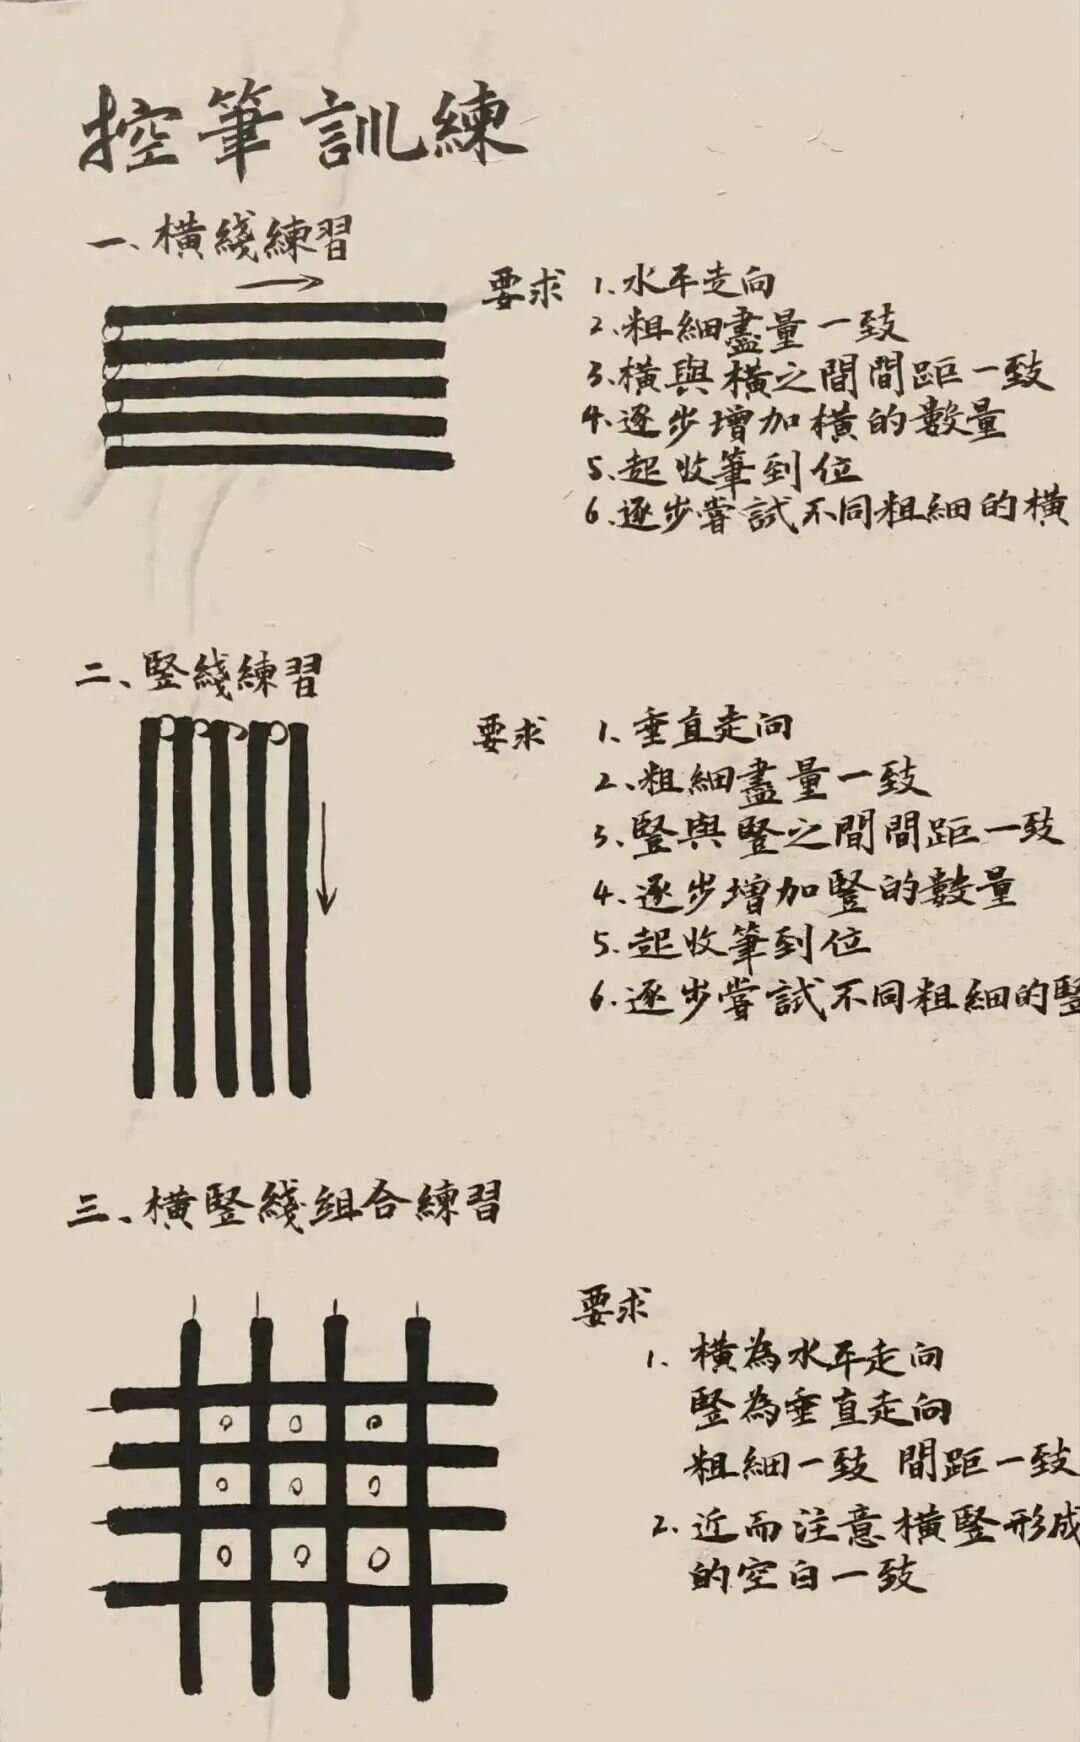 控筆訓練
一、橫綫練習
要求 1.水平走向
2.粗細盡量一致
3.橫與橫之間間距一致
4.逐步增加橫的數量
5.起收筆到位
6.逐步嘗試不同粗細的橫
二、竪綫練習
要求 1.垂直走向
2.粗細盡量一致
3.竪與竪之間間距一致
4.逐步增加竪的數量
5.起收筆到位
6.逐步嘗試不同粗細的竪
三、橫竪綫組合練習
要求
1.橫為水平走向
竪為垂直走向
粗細一致 間距一致
2.近而注意橫竪形成
的空白一致